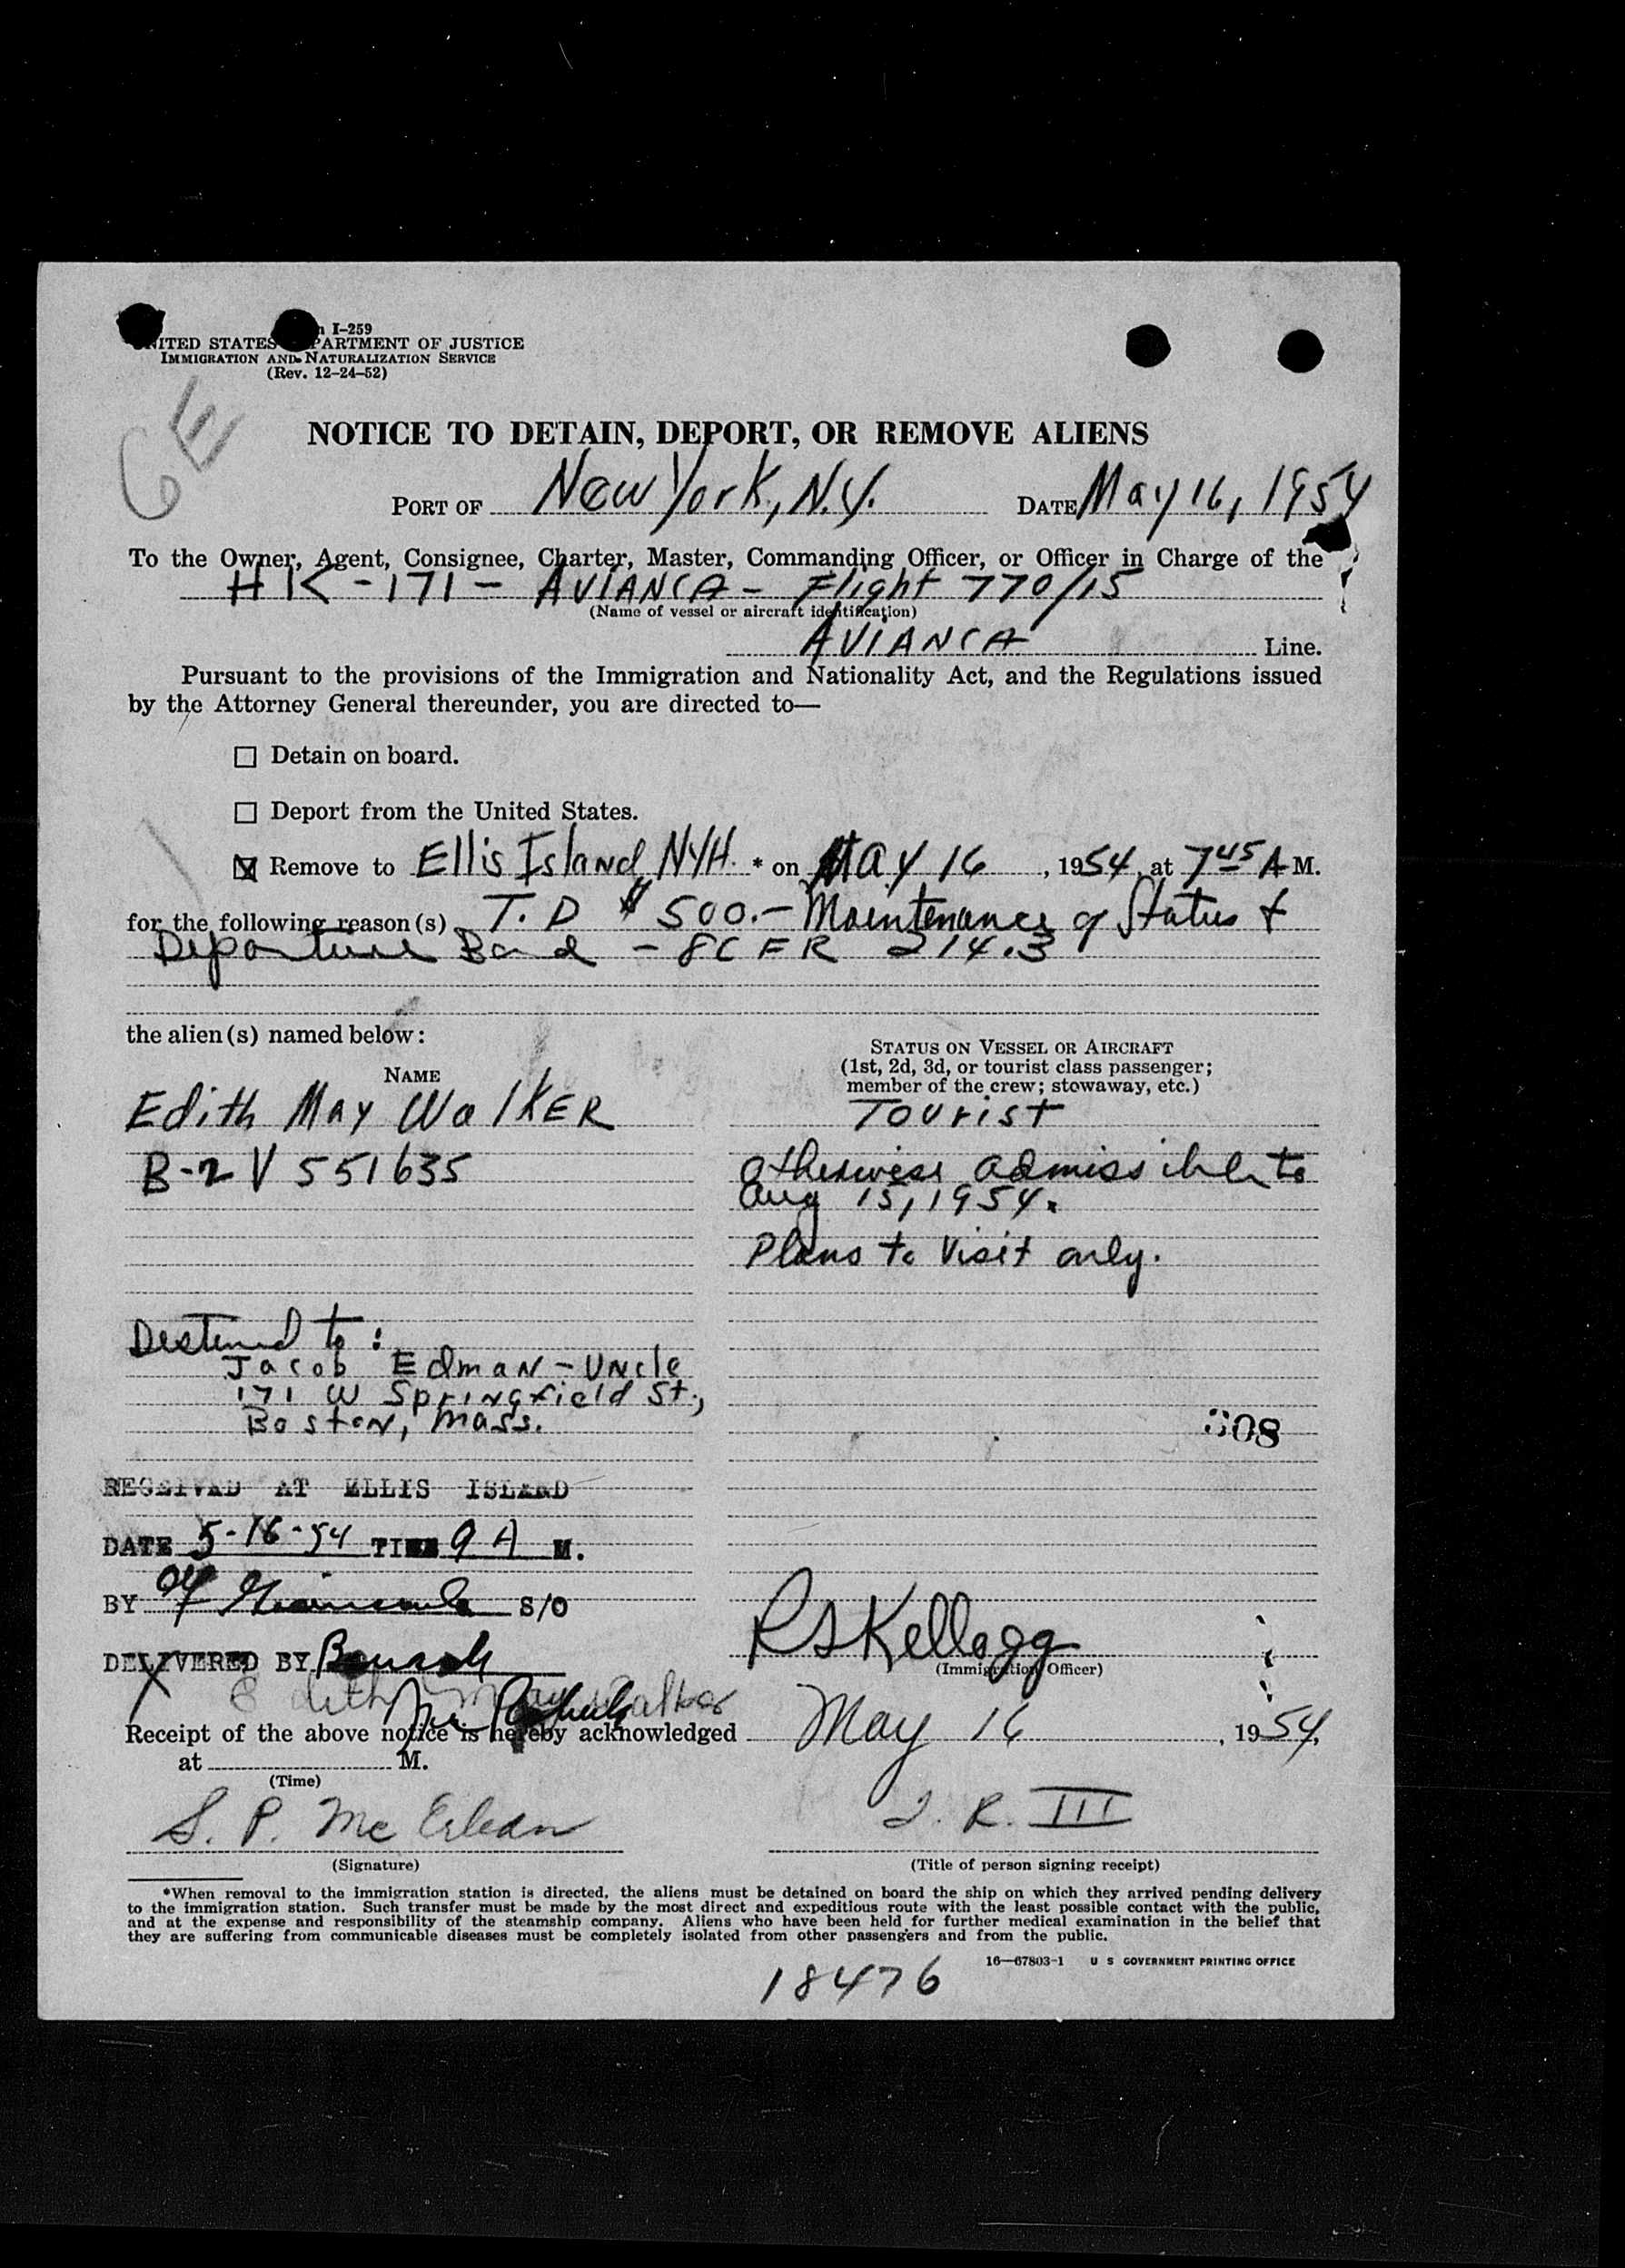 I-259
UNITED STATES DEPARTMENT OF JUSTICE
IMMIGRATION AND NATURALIZATION SERVICE
(Rev. 12-24-52)
GE
NOTICE TO DETAIN, DEPORT, OR REMOVE ALIENS
PORT OF New York, N.Y. DATE May 16, 1954
To the Owner, Agent, Consignee, Charter, Master, Commanding Officer, or Officer in Charge of the
HK-171- AVIANCA - Flight 770/15
(Name of vessel or aircraft identification)
AVIANCA Line.
Pursuant to the provisions of the Immigration and Nationality Act, and the Regulations issued
by the Attorney General thereunder, you are directed to—
☐ Detain on board.
☐ Deport from the United States.
☒ Remove to Ellis Island, NYH. * on MAY 16, 1954, at 7 45 A M.
for the following reason(s) T. D $ 500.- Maintenance of Status &
Departure Bond - 8CFR 214.3
the alien(s) named below:
NAME
STATUS ON VESSEL OR AIRCRAFT
(1st, 2d, 3d, or tourist class passenger;
member of the crew; stowaway, etc.)
Edith May WalKER
Tourist
B-2 V 551635
Otherwise admissible to
Aug 15, 1954.
Plans to Visit only.
Destined to:
Jacob Edman - Uncle
171 W Springfield St.,
Boston, Mass.
308
RECEIVED AT ELLIS ISLAND
DATE 5-16-54 TIME 9 A M.
BY S/O
DELIVERED BY
RSKellogg
(Immigration Officer)
X Edith May Walker
Receipt of the above notice is hereby acknowledged May 16, 1954,
at M.
(Time)
S. P. McErlean
I. R. III
(Signature)
(Title of person signing receipt)
*When removal to the immigration station is directed, the aliens must be detained on board the ship on which they arrived pending delivery
to the immigration station. Such transfer must be made by the most direct and expeditious route with the least possible contact with the public,
and at the expense and responsibility of the steamship company. Aliens who have been held for further medical examination in the belief that
they are suffering from communicable diseases must be completely isolated from other passengers and from the public.
16—67803-1 U S GOVERNMENT PRINTING OFFICE
18476